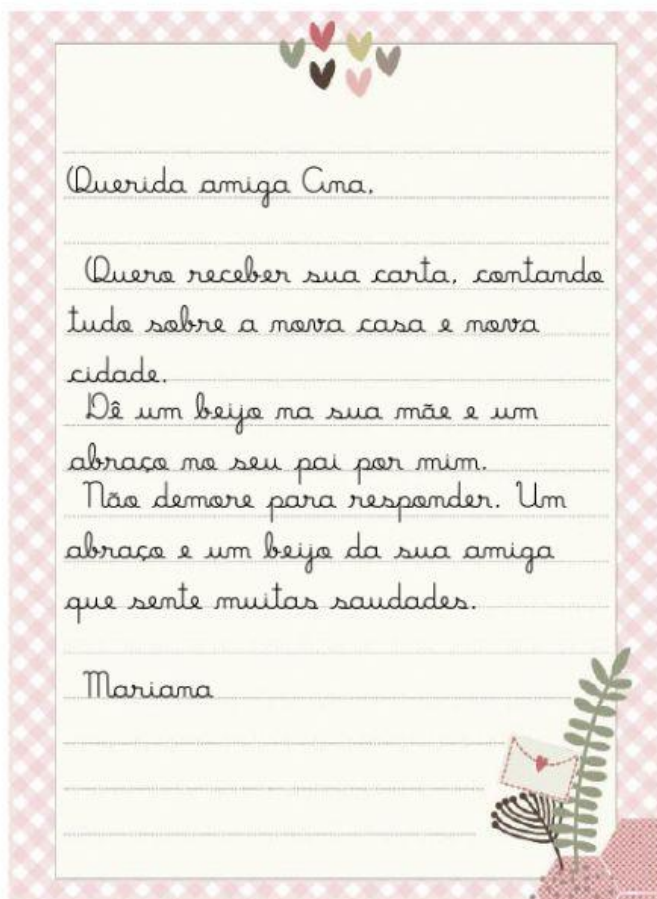 Querida amiga Ana,
Quero receber sua carta, contando
tudo sobre a nova casa e nova
cidade.
Dê um beijo na sua mãe e um
abraço no seu pai por mim.
Não demore para responder. Um
abraço e um beijo da sua amiga
que sente muitas saudades.
Mariana